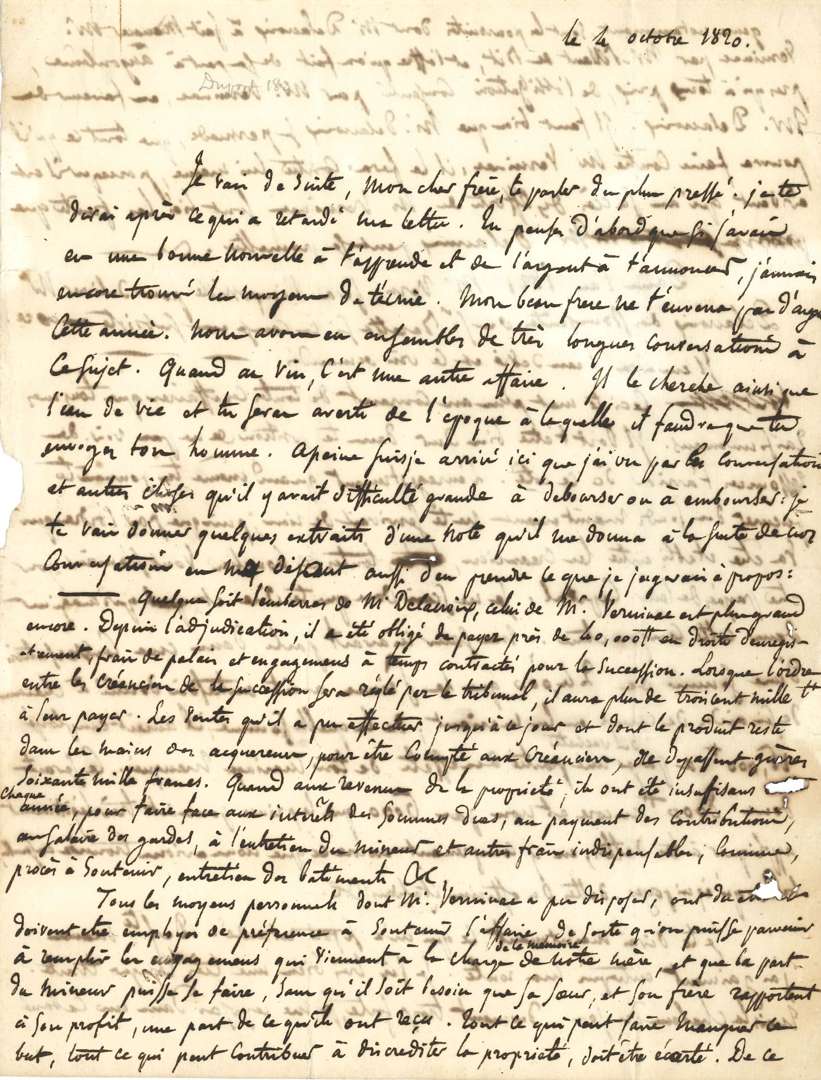 le 4 octobre 1820.
Dupont 182
Je vais de suite, mon cher frère, te parler du plus pressé. je te
dirai après ce qui a retardé ma lettre. Tu penses d'abord que si j'avais
eu une bonne nouvelle à t'apprendre et de l'argent à t'annoncer, j'aurais
encore trouvé le moyen de t'écrire. Mon beau frere ne t'enverra pas d'arge
cette année. nous avons eu ensembles de très longues conversations à
ce sujet. Quand au vin, c'est une autre affaire. Il le cherche ainsi que
l'eau de vie et tu seras averti de l'époque à laquelle il faudra que tu
envoyes ton homme. Apeine suis je arrivé ici que j'ai vu par les conversations
et autres choses qu'il y avait difficulté grande à debourser ou à embourser: je
te vais donner quelques extraits d'une note qu'il me donna à la suite de nos
conversations en me disant aussi d'en prendre ce que je jugerais à propos:
Quelque soit l'embarras de Mr Delacroix, celui de Mr. Verninac est plus grand
encore. Depuis l'adjudication, il a été obligé de payer près de 40,000 tt en droits d'enregis-
-trement, frais de palais et engagemens à temps contractés pour la succession. Lorsque l'ordre
entre les créanciers de la succession sera réglé par le tribunal, il aura plus de trois cent mille tt
à leur payer. Les ventes qu'il a pu effectuer jusqu'à ce jour et dont le produit reste
dans les mains des acquereurs, pour être compté aux créanciers, ne dépassent guères
soixante mille francs. Quand aux revenus de la propriété, ils ont été insuffisans
chaque
année, pour faire face aux intérêts des sommes dues, au payment des contributions,
au salaire des gardes, à l'entretien du mineur et autres frais indispensables, comme,
procès à soutenir, entretien des batiments &c.
Tous les moyens personnels dont Mr. Verninac a pu disposer, ont du et
doivent être employés de préférence à soutenir l'affaire de sorte qu'on puisse parvenir
de la mémoire
à remplir les engagemens qui viennent à la charge de notre mère, et que la part
du mineur puisse se faire, sans qu'il soit besoin que sa sœur, et son frère rapportent
à son profit, une part de ce qu'ils ont reçu. Tout ce qui peut faire manquer ce
but, tout ce qui peut contribuer à discrediter la propriété, doit être écarté. De ce